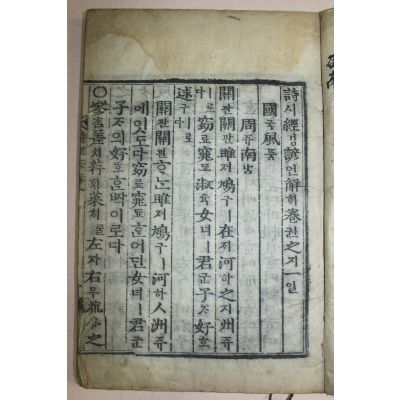 詩시經경諺언解ᄒᆡ卷권之지一일
國국風풍
周쥬南남
關관關관雎져鳩구ㅣ在ᄌᆡ河하之지洲쥬
ㅣ로다窈요窕됴淑슉女녀ㅣ君군子ᄌᆞ好호
逑구ㅣ로다
關관關관ᄒᆞᄂᆞᆫ雎져鳩구ㅣ河하人洲쥬
에잇도다窈요窕됴ᄒᆞᆫ어딘女녀ㅣ君군
子ᄌᆞ의好호ᄒᆞᆫᄧᅡᆨ이로다
○參差치荇ᄒᆡᆼ菜ᄎᆡ左자右우流류之